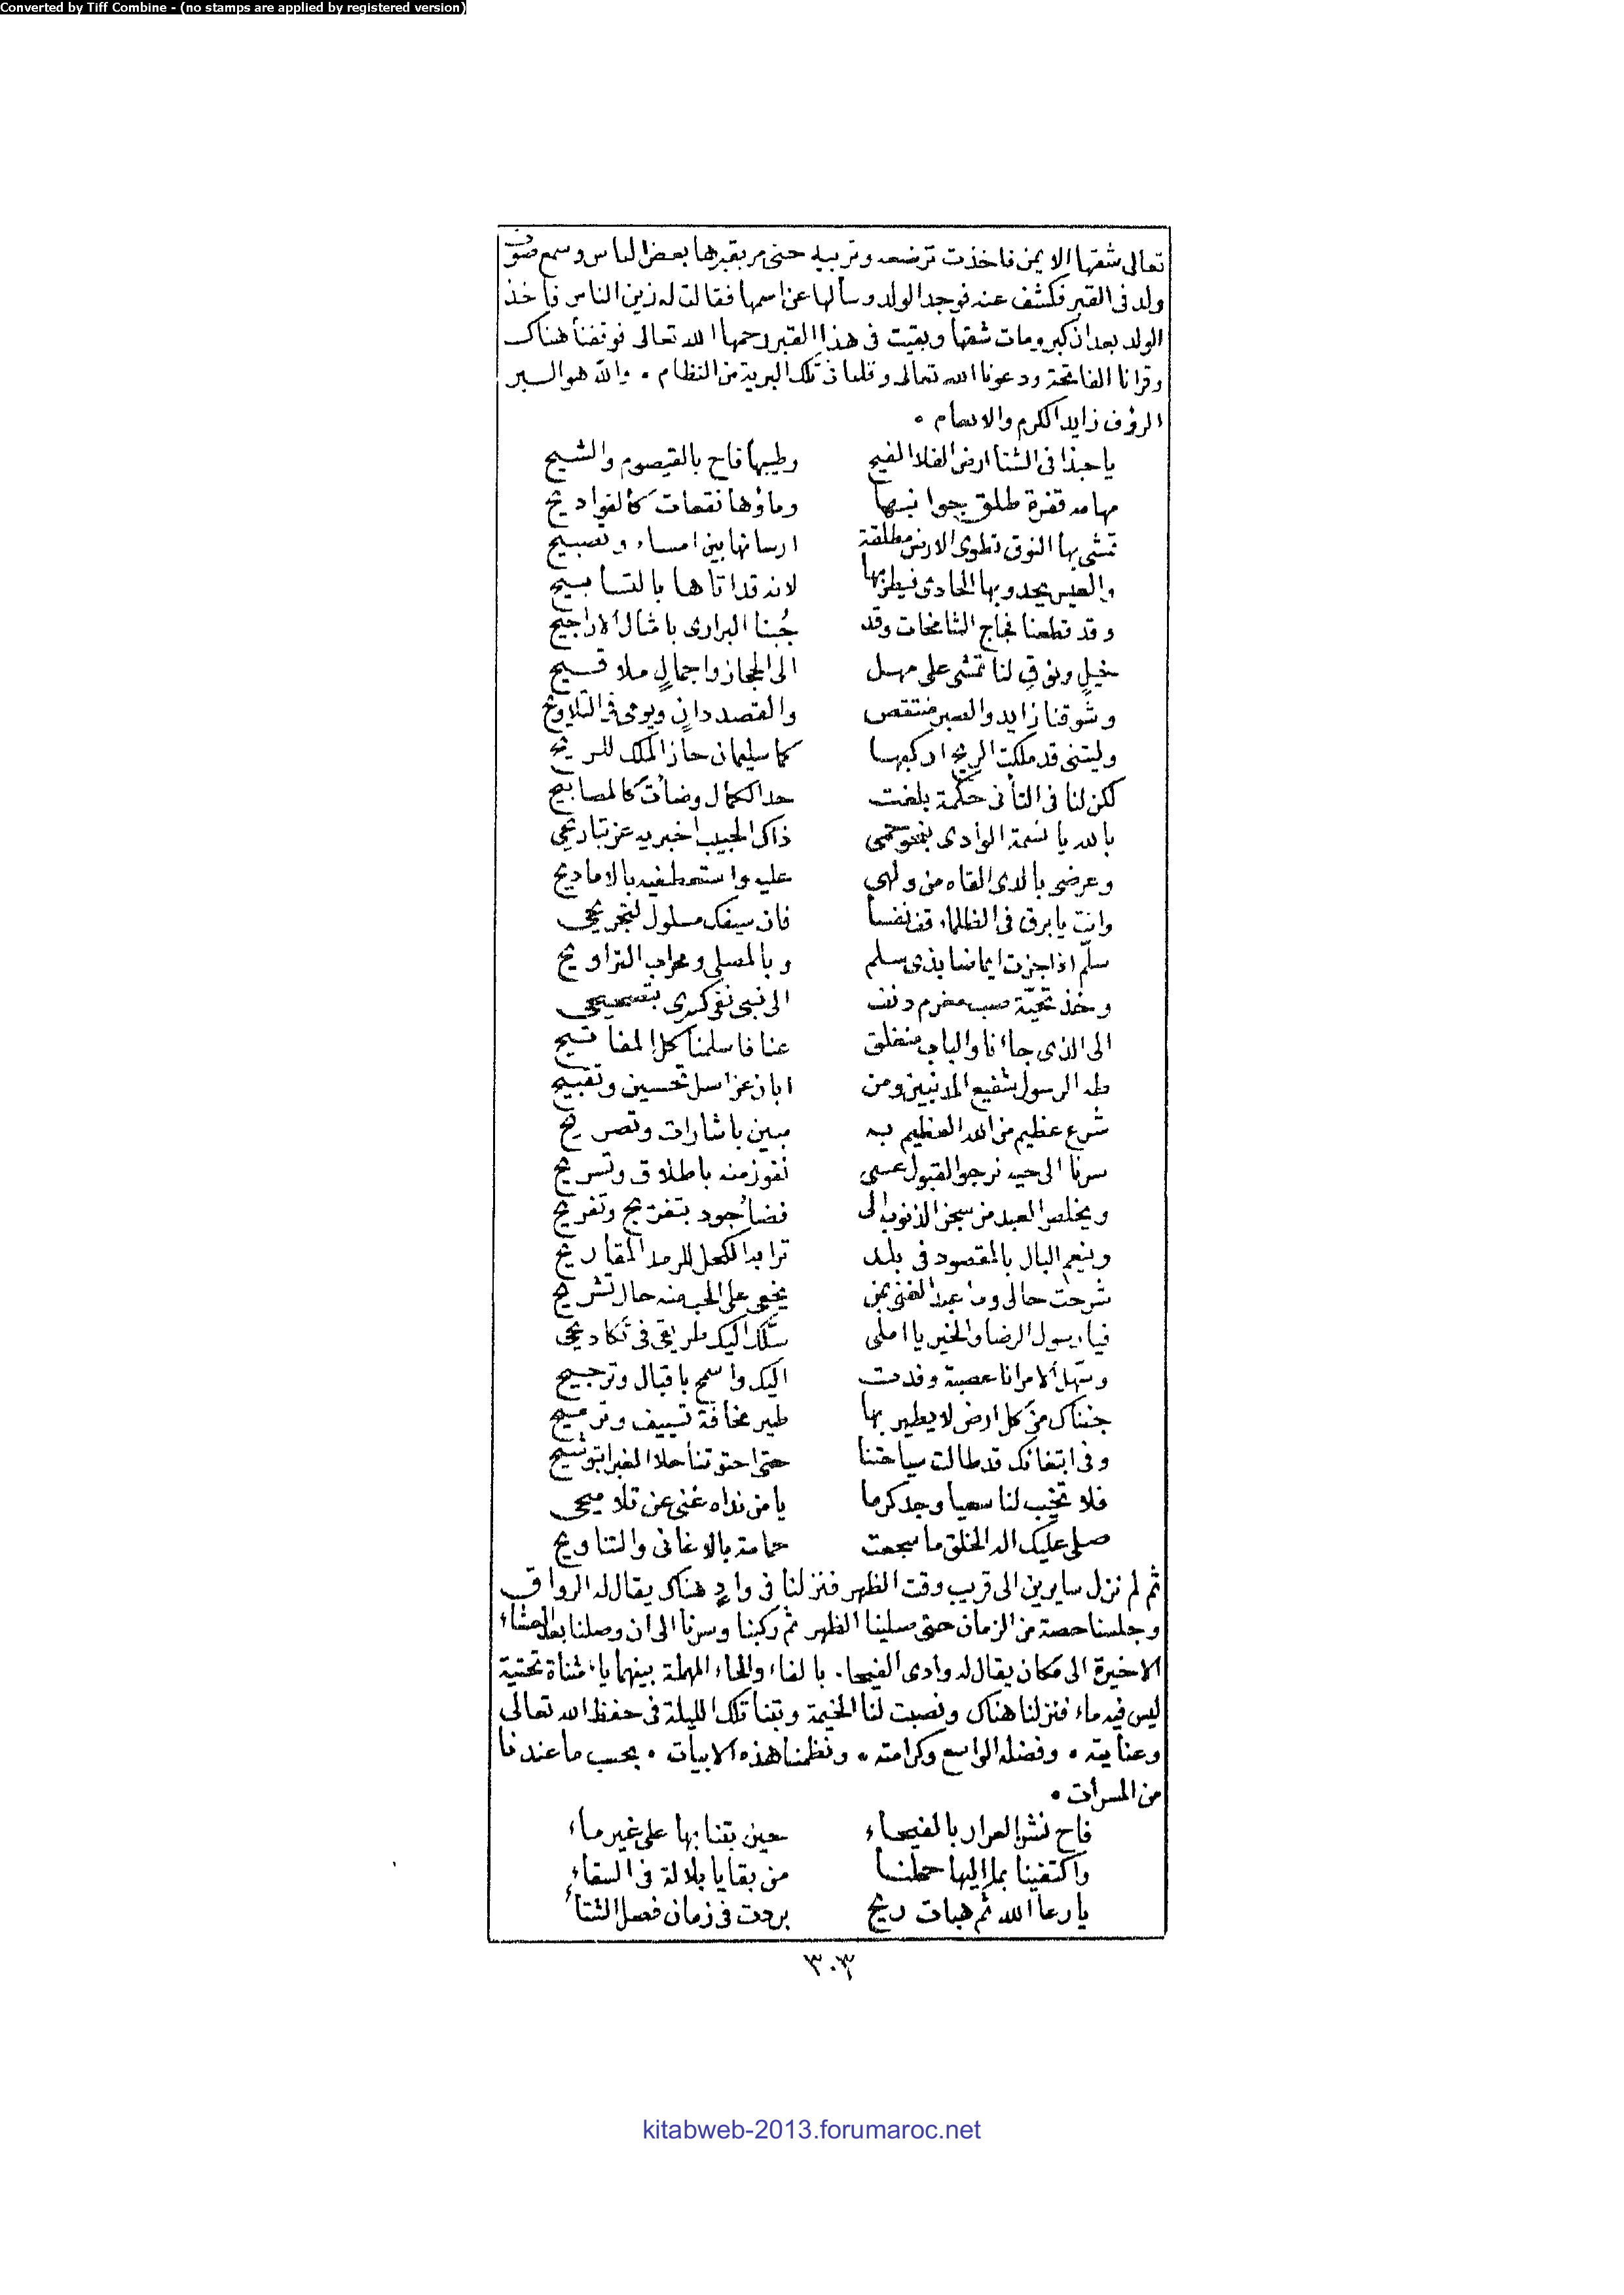 Converted by Tiff Combine - (no stamps are applied by registered version)
تعالى شقها الايمن فاخذت ترضعه وتربيه حتى مر بقبرها بعض الناس وسمع صوت
ولد فى القبر فكشف عنه فوجد الولد وسألها عن اسمها فقالت له زين الناس فأخذ
الولد بعد ان كبر ومات شقها وبقيت فى هذا القبر رحمها الله تعالى فوقفنا هناك
وقرانا الفاتحة ودعونا الله تعالى وقلنا فى تلك البرية من النظام • والله هو البر
الرؤف زايد الكرم والانعام •
يا حبذا فى الشتا ارض الفلا الفيح وطيبها فاح بالقيصوم والشيح
مهامه قفرة طلق جوانبها وماؤها نقعات كالفواديح
تمشى بها النوق تطوى الارض مطلقة ارسانها بين امساء وتصبيح
والعيس يحدو بها الحادى فيطربها لانه قد اتاها بالتسابيح
وقد قطعنا فجاج الشامخات وقد جُبنا البرارى بامثال الاراجيح
خيلٍ ونوقٍ لنا تمشى على مهل الى الحجاز واجمالٍ ملاقيح
وشوقنا زايد والصبر منتقص والقصد دانٍ ويومى فى التلاويح
وليتنى قد ملكت الريح اركبها كما سليمان حاز الملك للريح
لكن لنا فى التأنى حكمة بلغت حد الكمال وضأت كالمصابيح
بالله يا نسمة الوادى بنعو حمى ذاك الحبيب اخبريه عن تباريحى
وعرضى بالذى القاه من ولهى عليه واستعطفيه بالاماديح
وانت يا برق فى الظلماء قف نفسا فان سيفك مسلول لتجريحى
سلّم اذا جزت ايماضا بذى سلم وبالمصلى ومحراب التراويح
وخذ تحيّة صب مغرم دنف الى نبى نفى كسرى بتصحيحى
الى الذى جاءنا والباب منغلق عنا فاسلمنا كل المفاتيح
طه الرسول شفيع المذنبين ومن ابان عن اصل تحسين وتقبيح
شرع عظيم من الله العظيم به مبين باشارات وتصريح
سرنا الى حيه نرجو القبول عسى نفوز منه باطلاق وتسريح
ويخلص العبد من سجن الذنوب الى فضا جود بتفريج وتفريح
وينعم البال بالمقصود فى بلد ترابه الكحل للرمد المقاريح
شرحت حالى وما عبد الغنى بمن يخفى على الحب منه حال تشريح
فيا رسول الرضا والخير يا املى سلك اليك طريقى فى تكاديحى
وسهل الامر انا عصبة وفدت اليك واسمح باقبال وترجيح
جئناك من كل ارض لا يطير بها طير مخافة تسييف وترميح
وفى ابتغائك قد طالت سياحتنا حتى احتوتنا حلا الغبرا بتوشيح
فلا تخيب لنا سعيا وجد كرما يا من نداه غنى عن تلاميحى
صلى عليك اله الخلق ما سجعت حمامة بالاغانى والتناويح
ثم لم نزل سايرين الى قريب وقت الظهر فنزلنا فى وادٍ هناك يقال له الرواق
وجلسنا حصة من الزمان حتى صلينا الظهر ثم ركبنا وسرنا الى ان وصلنا بعد العشاء
الاخيرة الى مكان يقال له وادى الفيحا. بالفاء والحاء المهملة بينهما ياء مثناة تحتية
ليس فيه ماء فنزلنا هناك ونصبت لنا الخيمة وبتنا تلك الليلة فى حفظ الله تعالى
وعنايته • وفضله الواسع وكرامته • ونظمنا هذه الابيات • بحسب ما عندنا
من المسرات •
فاح نشر العرار بالفيحاء حين بتنا بها على غير ماء
واكتفينا بما اليها حملنا من بقايا بلالة فى السقاء
يا رعا الله ثم هبات ريح بردت فى زمان فصل الشتاء
٣٠٣
kitabweb-2013.forumaroc.net